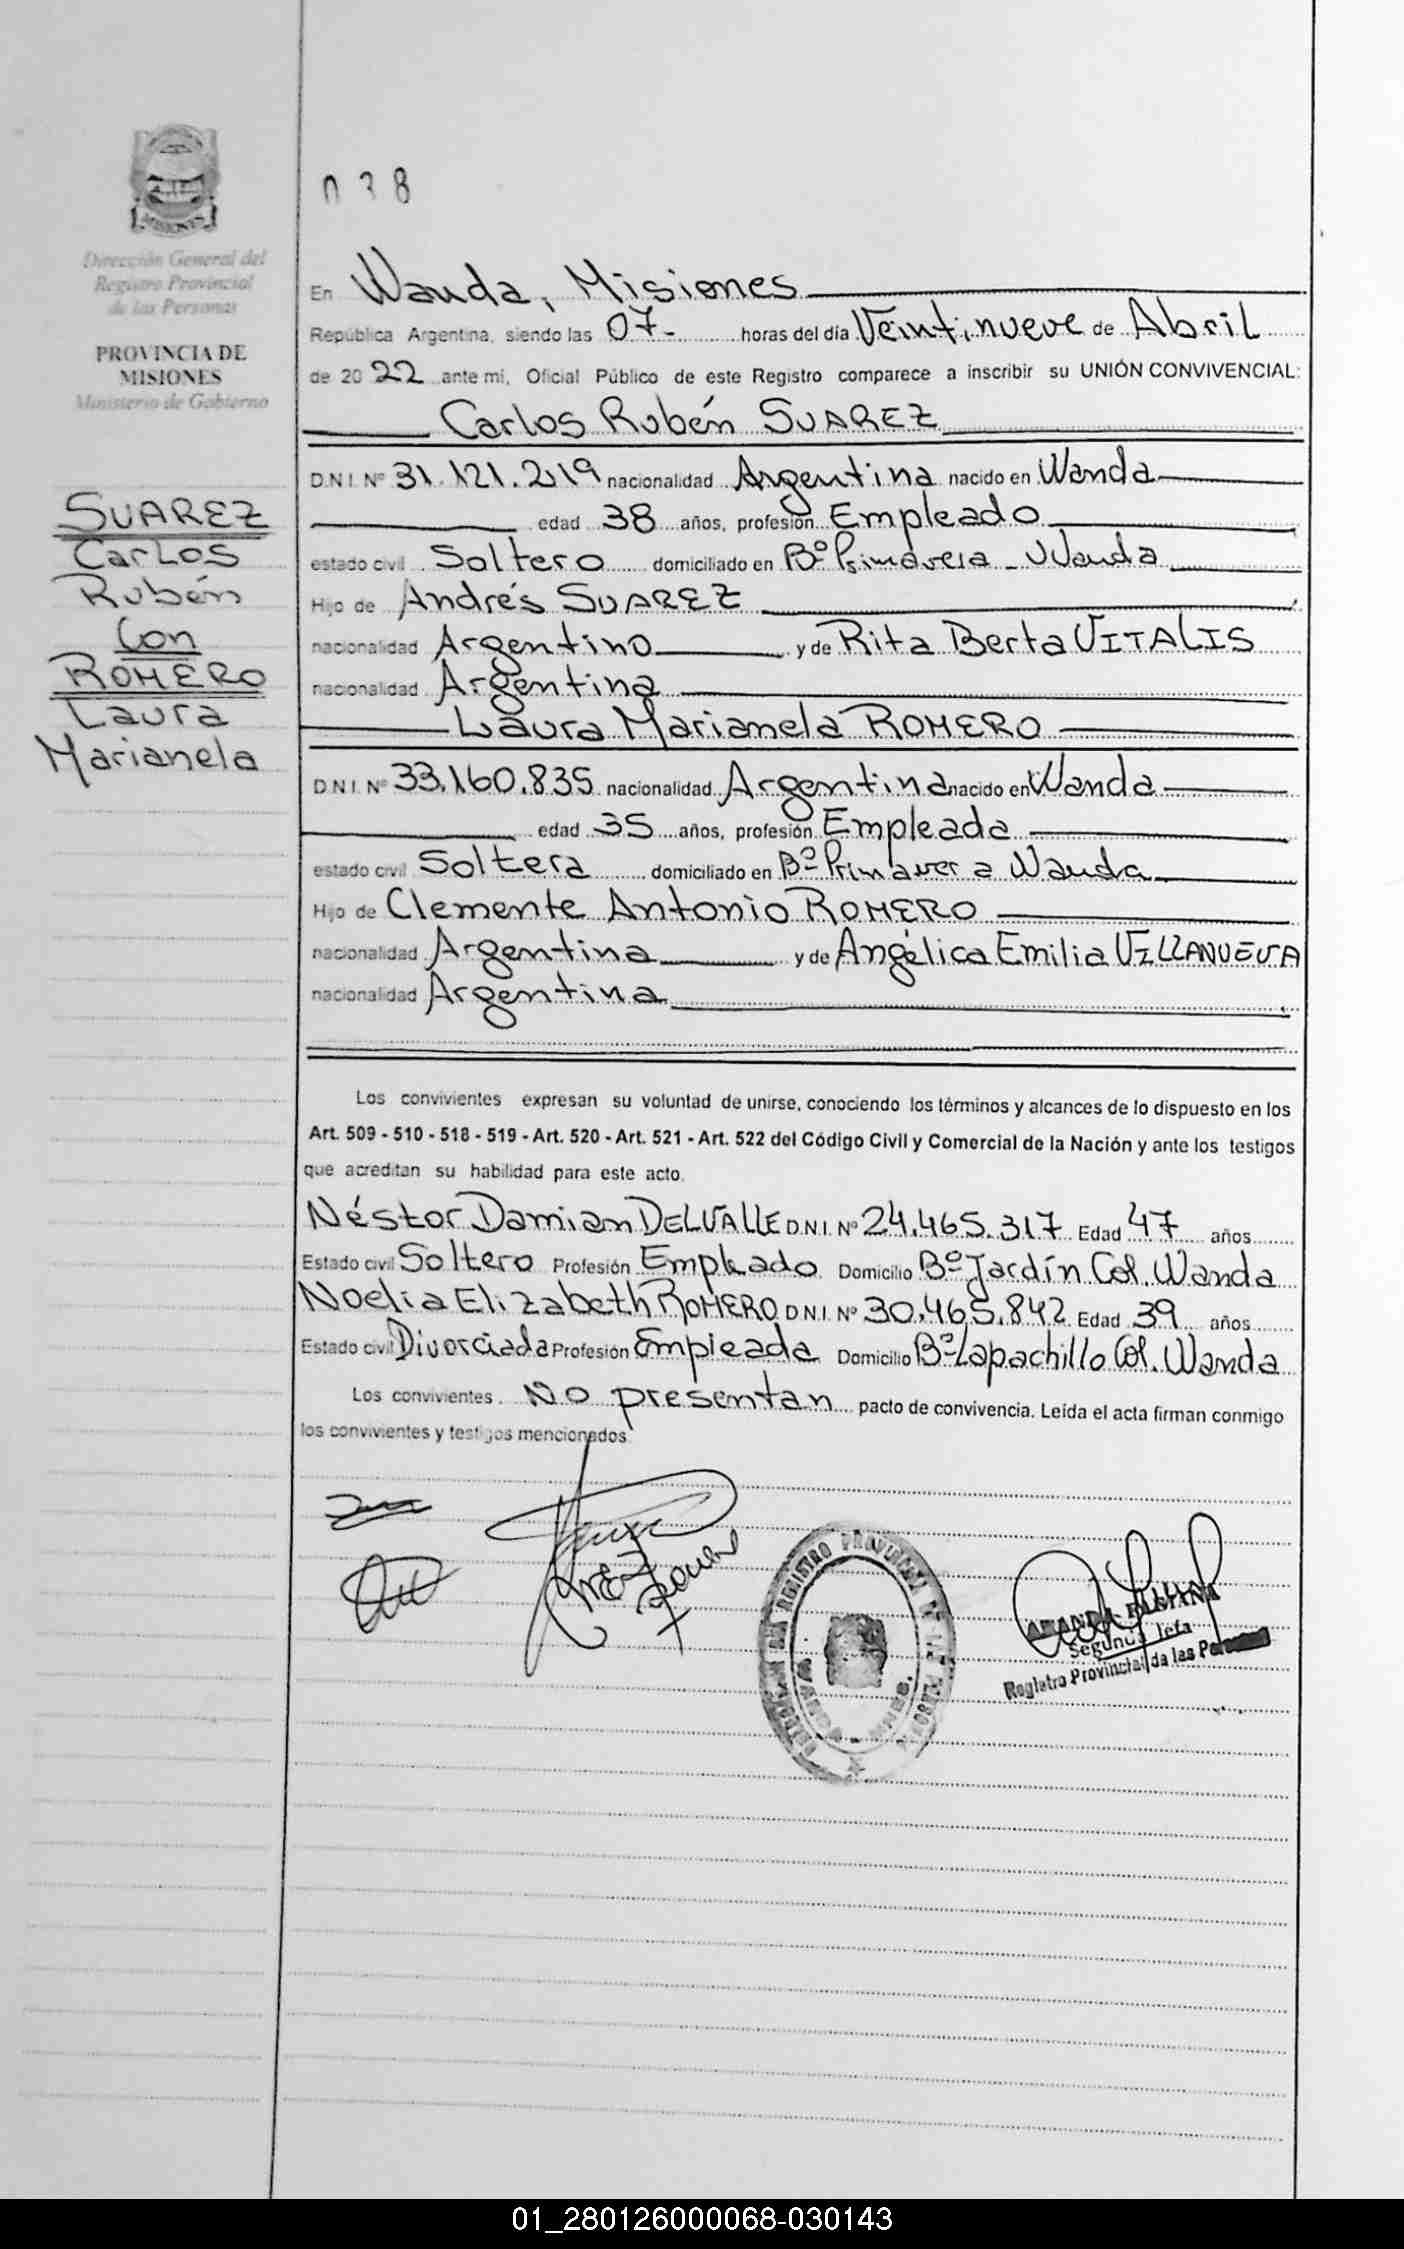 038
MISIONES
Dirección General del
Registro Provincial
de las Personas
PROVINCIA DE
MISIONES
Ministerio de Gobierno
SUAREZ
Carlos
Rubén
Con
ROMERO
Laura
Marianela
En Wanda, Misiones
República Argentina, siendo las 07- horas del día Veintinueve de Abril
de 2022 ante mi, Oficial Público de este Registro comparece a inscribir su UNIÓN CONVIVENCIAL:
Carlos Rubén SUAREZ
D.N.I. Nº 31.121.219 nacionalidad Argentina nacido en Wanda
edad 38 años, profesión Empleado
estado civil Soltero domiciliado en Bº Primavera - Wanda
Hijo de Andrés SUAREZ
nacionalidad Argentino y de Rita Berta VITALIS
nacionalidad Argentina
Laura Marianela ROMERO
D.N.I. Nº 33.160.835 nacionalidad Argentina nacido en Wanda
edad 35 años, profesión Empleada
estado civil Soltera domiciliado en Bº Primavera Wanda
Hijo de Clemente Antonio ROMERO
nacionalidad Argentina y de Angélica Emilia VILLANUEVA
nacionalidad Argentina
Los convivientes expresan su voluntad de unirse, conociendo los términos y alcances de lo dispuesto en los
Art. 509 - 510 - 518 - 519 - Art. 520 - Art. 521 - Art. 522 del Código Civil y Comercial de la Nación y ante los testigos
que acreditan su habilidad para este acto.
Néstor Damian DELVALLE D.N.I. Nº 24.465.317 Edad 47 años
Estado civil Soltero Profesión Empleado Domicilio Bº Jardín Col. Wanda
Noelia Elizabeth ROMERO D.N.I. Nº 30.465.842 Edad 39 años
Estado civil Divorciada Profesión Empleada Domicilio Bº Lapachillo Col. Wanda
Los convivientes No presentan pacto de convivencia. Leída el acta firman conmigo
los convivientes y testigos mencionados
Registro Provincial de las Personas
01_280126000068-030143